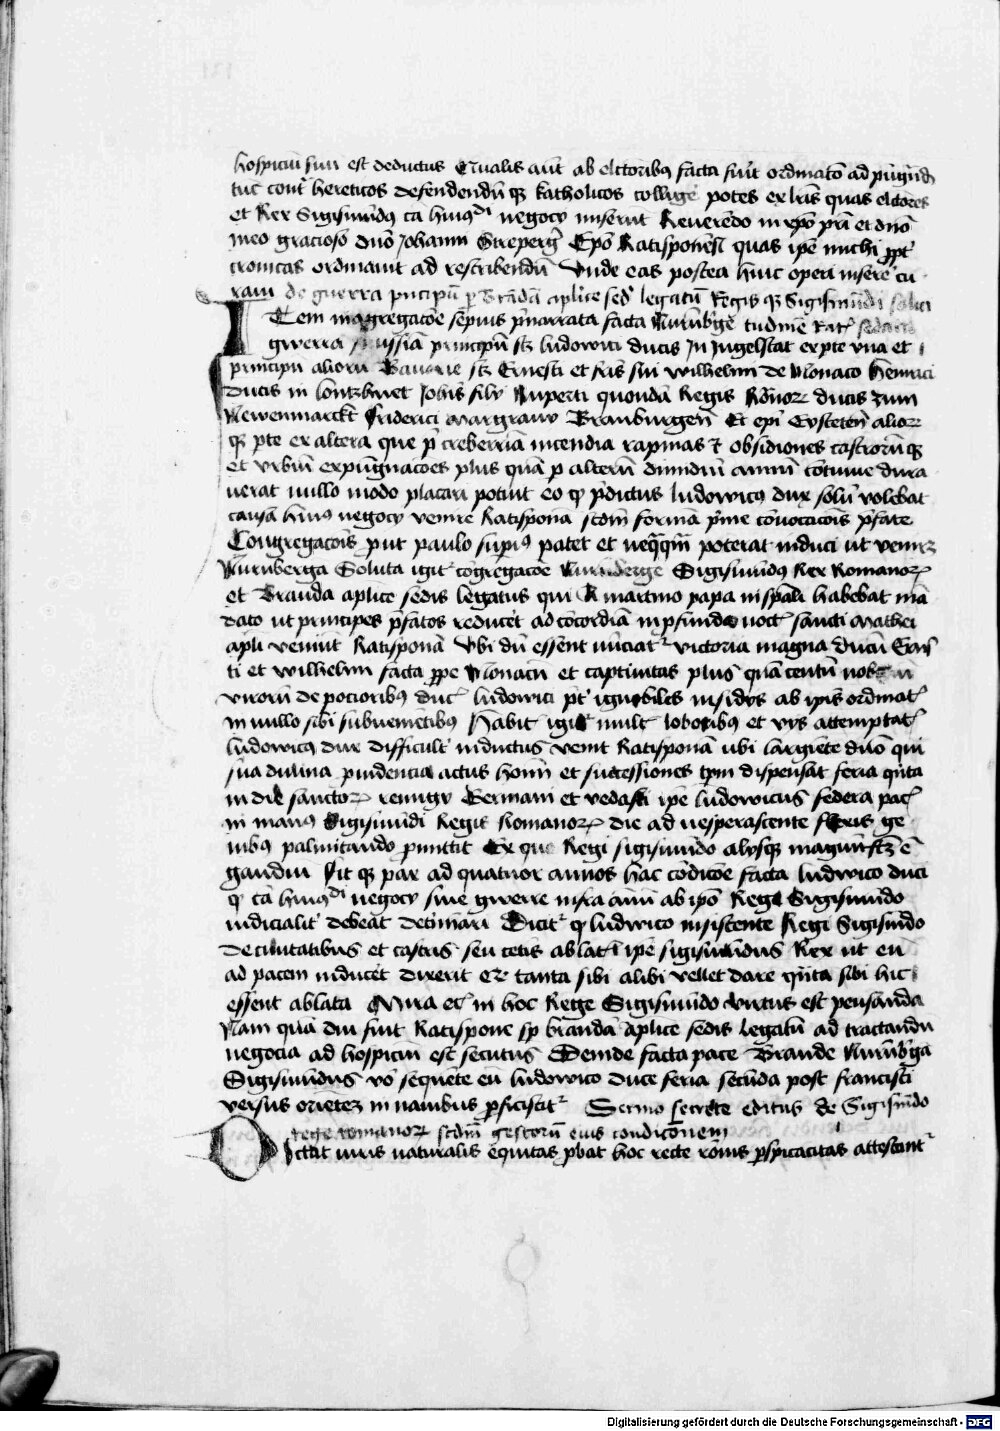 hospiciũ suũ est deductus Qualis aũt ab elctoribus facta fuit ordinatõ ad pũgnãd
tur contª hereticos defendendũ qz katholicos collige potes ex lrĩs quas elctores
et Rex Sigismũdus cã huiusdi negocy miserũt Reverẽdo in xp̃o prĩ et dnõ
meo gracioso dnõ Johanni Streperg̃ Ep̃o Ratisponeñ quas ip̃e michi ppt̃
cronicas ordinavit ad rescribendũ Vnde eas postea huic operi insere cu
ravi de guerra pncipũ p Brãdã aplice sed̃ legatũ Regis qz Sigismũdi
Item in ꝯgregacõe sepius p̃narrata facta Nurnb̃ge
gwerra principũ scz ludowici ducis In Ingelstat ex pte vna et
principũ alioru Bavarie scz Ernesti et fris sui wilhelmi de Monaco Henrici
Ducis in lantzhuet Johis filij Ruperti quondã Regis Rõnor ducis zum
Newenmarckt Friderici margravij Branburgeñ Et epi Eysteteñ alior
qz pte ex altera que p creberriã incendia rapinas et obsidiones castrorũ qz
et vrbiũ expũgnacões plus quã p alterũ dimidiũ annũ cõtinue dura
verat nullo modo placari potuit eo qz p̃dictus ludowicus dux solũ volebat
causã huius negocy venire Ratisponã scdm̃ formã p̃me cõvocacõis p̃fate
Congregacõis put paulo supius patet et neq̃q̃m poterat induci ut veniret
Nurnberga Soluta igit cõgregacõe Nurnberge Sigismũdus Rex Romanor
et Branda aplice sedis legatus qui A martino papa in sp̃ali habebat mã
dato ut principes p̃fatos reducet ad cõcordiã in pfunda noct̃ sancti Mathei
apli veniũt Ratisponã Vbi dũ essent nũciat victoria magna ducũ Erñs
ti et wilhelmi facta ppe Monacũ et captivitas plus quã centũ nob
virorũ de pocioribus duc̃ ludowici pt̃ ignobiles insidys ab ipis ordinat
in nullo sibi subveniẽtibus Habit̃ igit̃ mult̃ laboribus et vys attemptat̃
ludowicus dux difficult̃ inductus venit Ratisponã ubi largiẽte dnõ qui
sua divina pvidencia actus hoim et successiones tpm dispensat feria qnta
in die sanctor remigy Germani et vedasti ipe ludowicus federa pac̃
in manus Sigismũdi Regis Romanor die ad vesperascente flexis ge
nibus palmitando pmittit Ex quo Regi sigismũdo alysqz magnũ fctz ẽ
gaudiũ Fit qz pax ad quatuor annos hac cõdicõe facta ludwico duci
qz cã huiusdi negocy sine gwerre infra annũ ab ipõ Rege Sigismũdo
iudicialit̃ debeat det̃minari Dicit̃ qz ludwico insistente Regi Sigismũdo
de civitatibus et castris seu cet̃is ablat̃ ipe sigismũdus Rex ut eũ
ad pacem induceret dixerit et tanta sibi alibi vellet dare qnta sibi hic
essent ablata Mira ec̃ in hoc Rege Sigismũdo virtus est pensanda
Nam quã diu fuit Ratispone sp brandã aplice sedis legatũ ad tractandũ
negocia ad hospiciũ est secutus Deinde facta pace Brande Nurnb̃ga
Sigismũdus vo sequẽte eũ ludowico duce feria secũda post francisci
versus orietez in navibus pficiscit̃ Sermo secrete editus de Sigismũdo
rege romanor scdm̃ gestorũ eius condicõnem
Dictat iuris naturalis equitas pbat hoc recte rõnis pspicacitas attestant̃
Digitalisierung gefördert durch die Deutsche Forschungsgemeinschaft - DFG